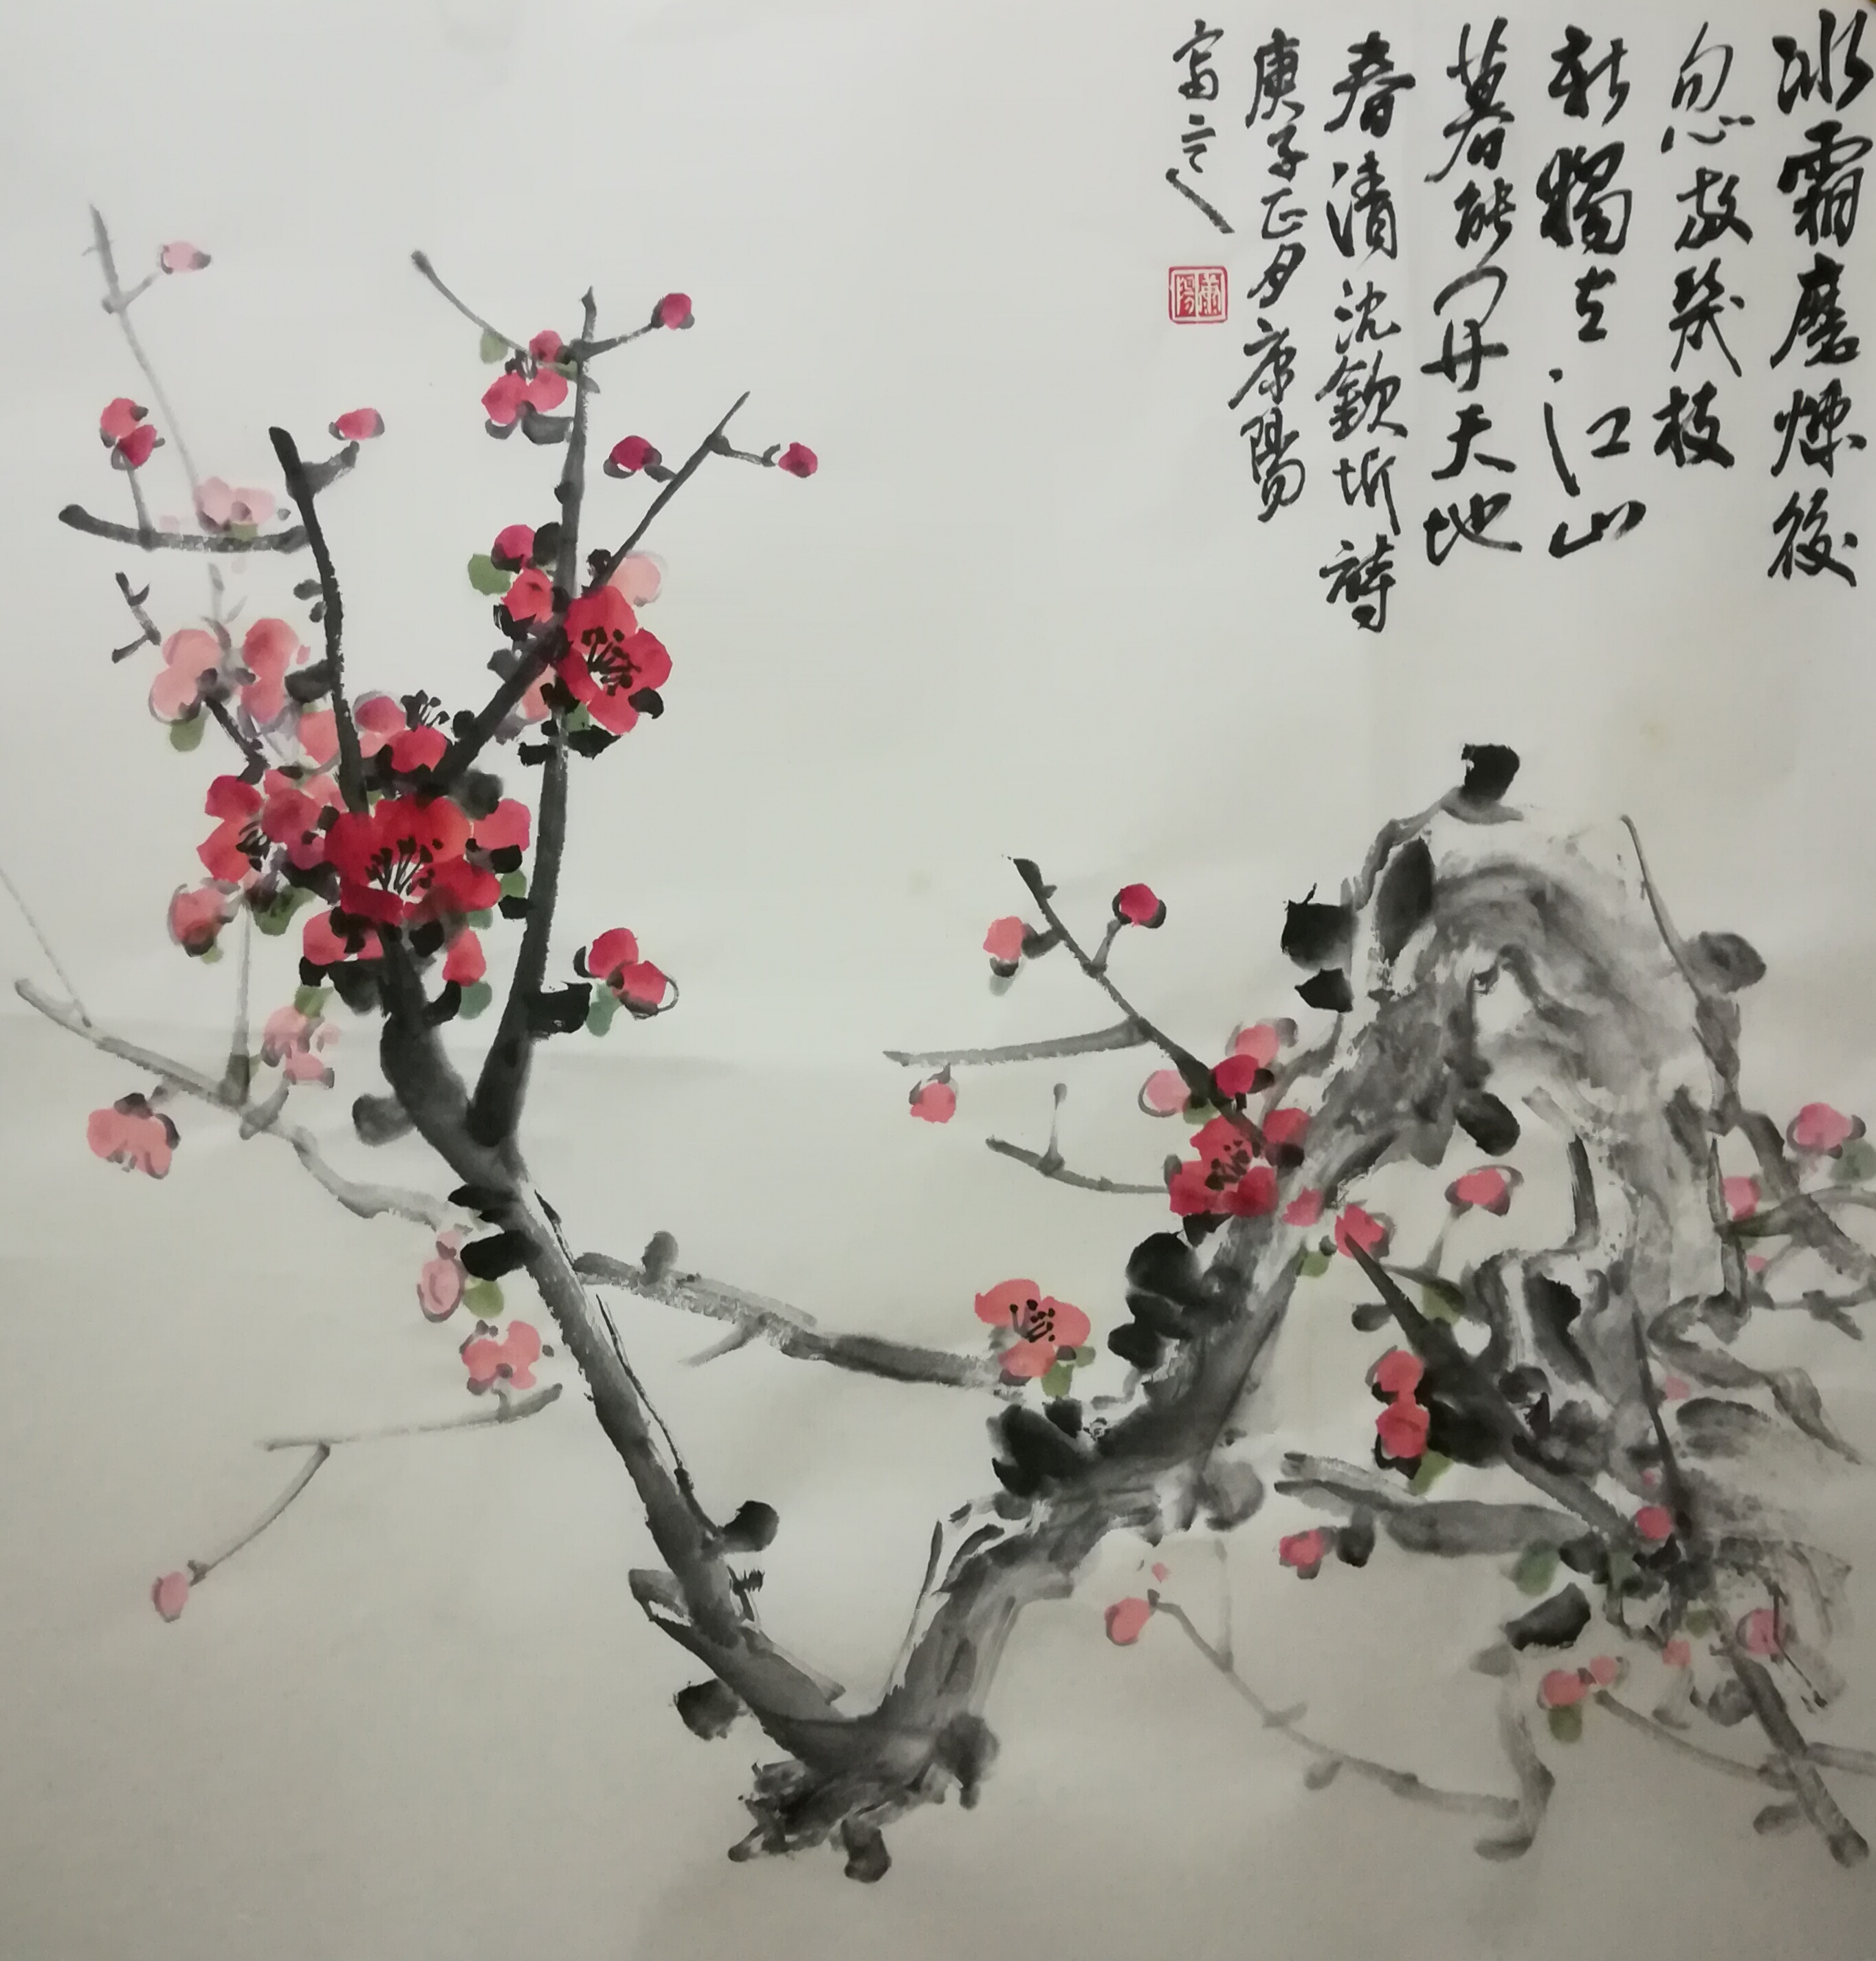 冰霜磨煉後
忽放幾枝
新獨立江山
暮能開天地
春清沈欽圻詩
庚子正月康陽
寫之
康陽